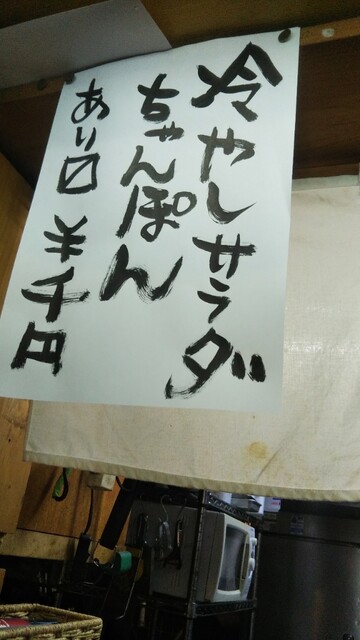 冷やしサラダ
ちゃんぽん
あり〼 ¥千円